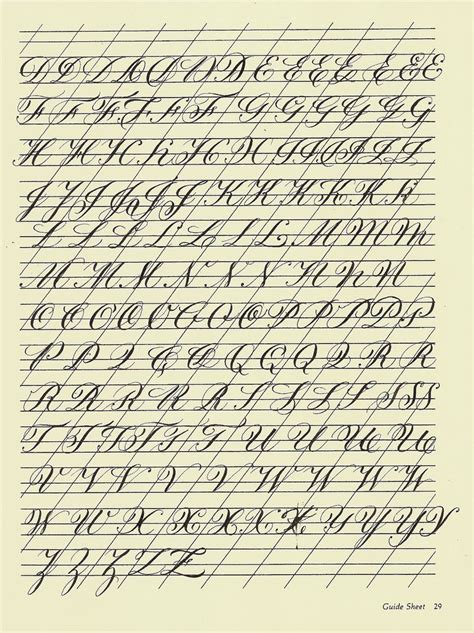 D D D D D D D E E E E E E E
F F F F F F G G G G G G
H H H H H H I I I I I I
J J J J J K K K K K K
L L L L L L L L M M M
M M M N N N N N N
O O O O O O O P P P P P
P P Q Q Q Q Q Q R R
R R R R R R S S S S S S
T T T T T T U U U U U
V V V V V V W W W
W W X X X X X Y Y Y Y
Z Z Z Z Z
Guide Sheet 29